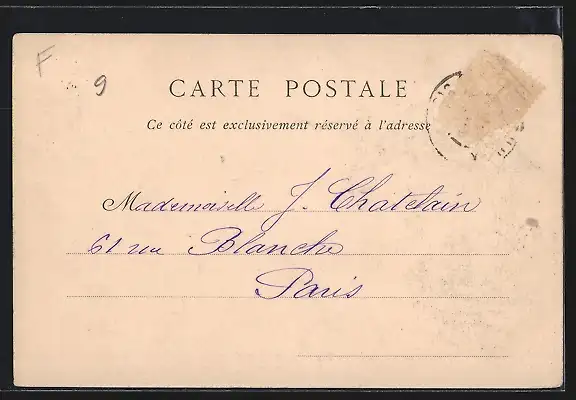 F 9
CARTE POSTALE
Ce côté est exclusivement réservé à l'adresse
Mademoiselle J. Chatelain
61 rue Blanche
Paris